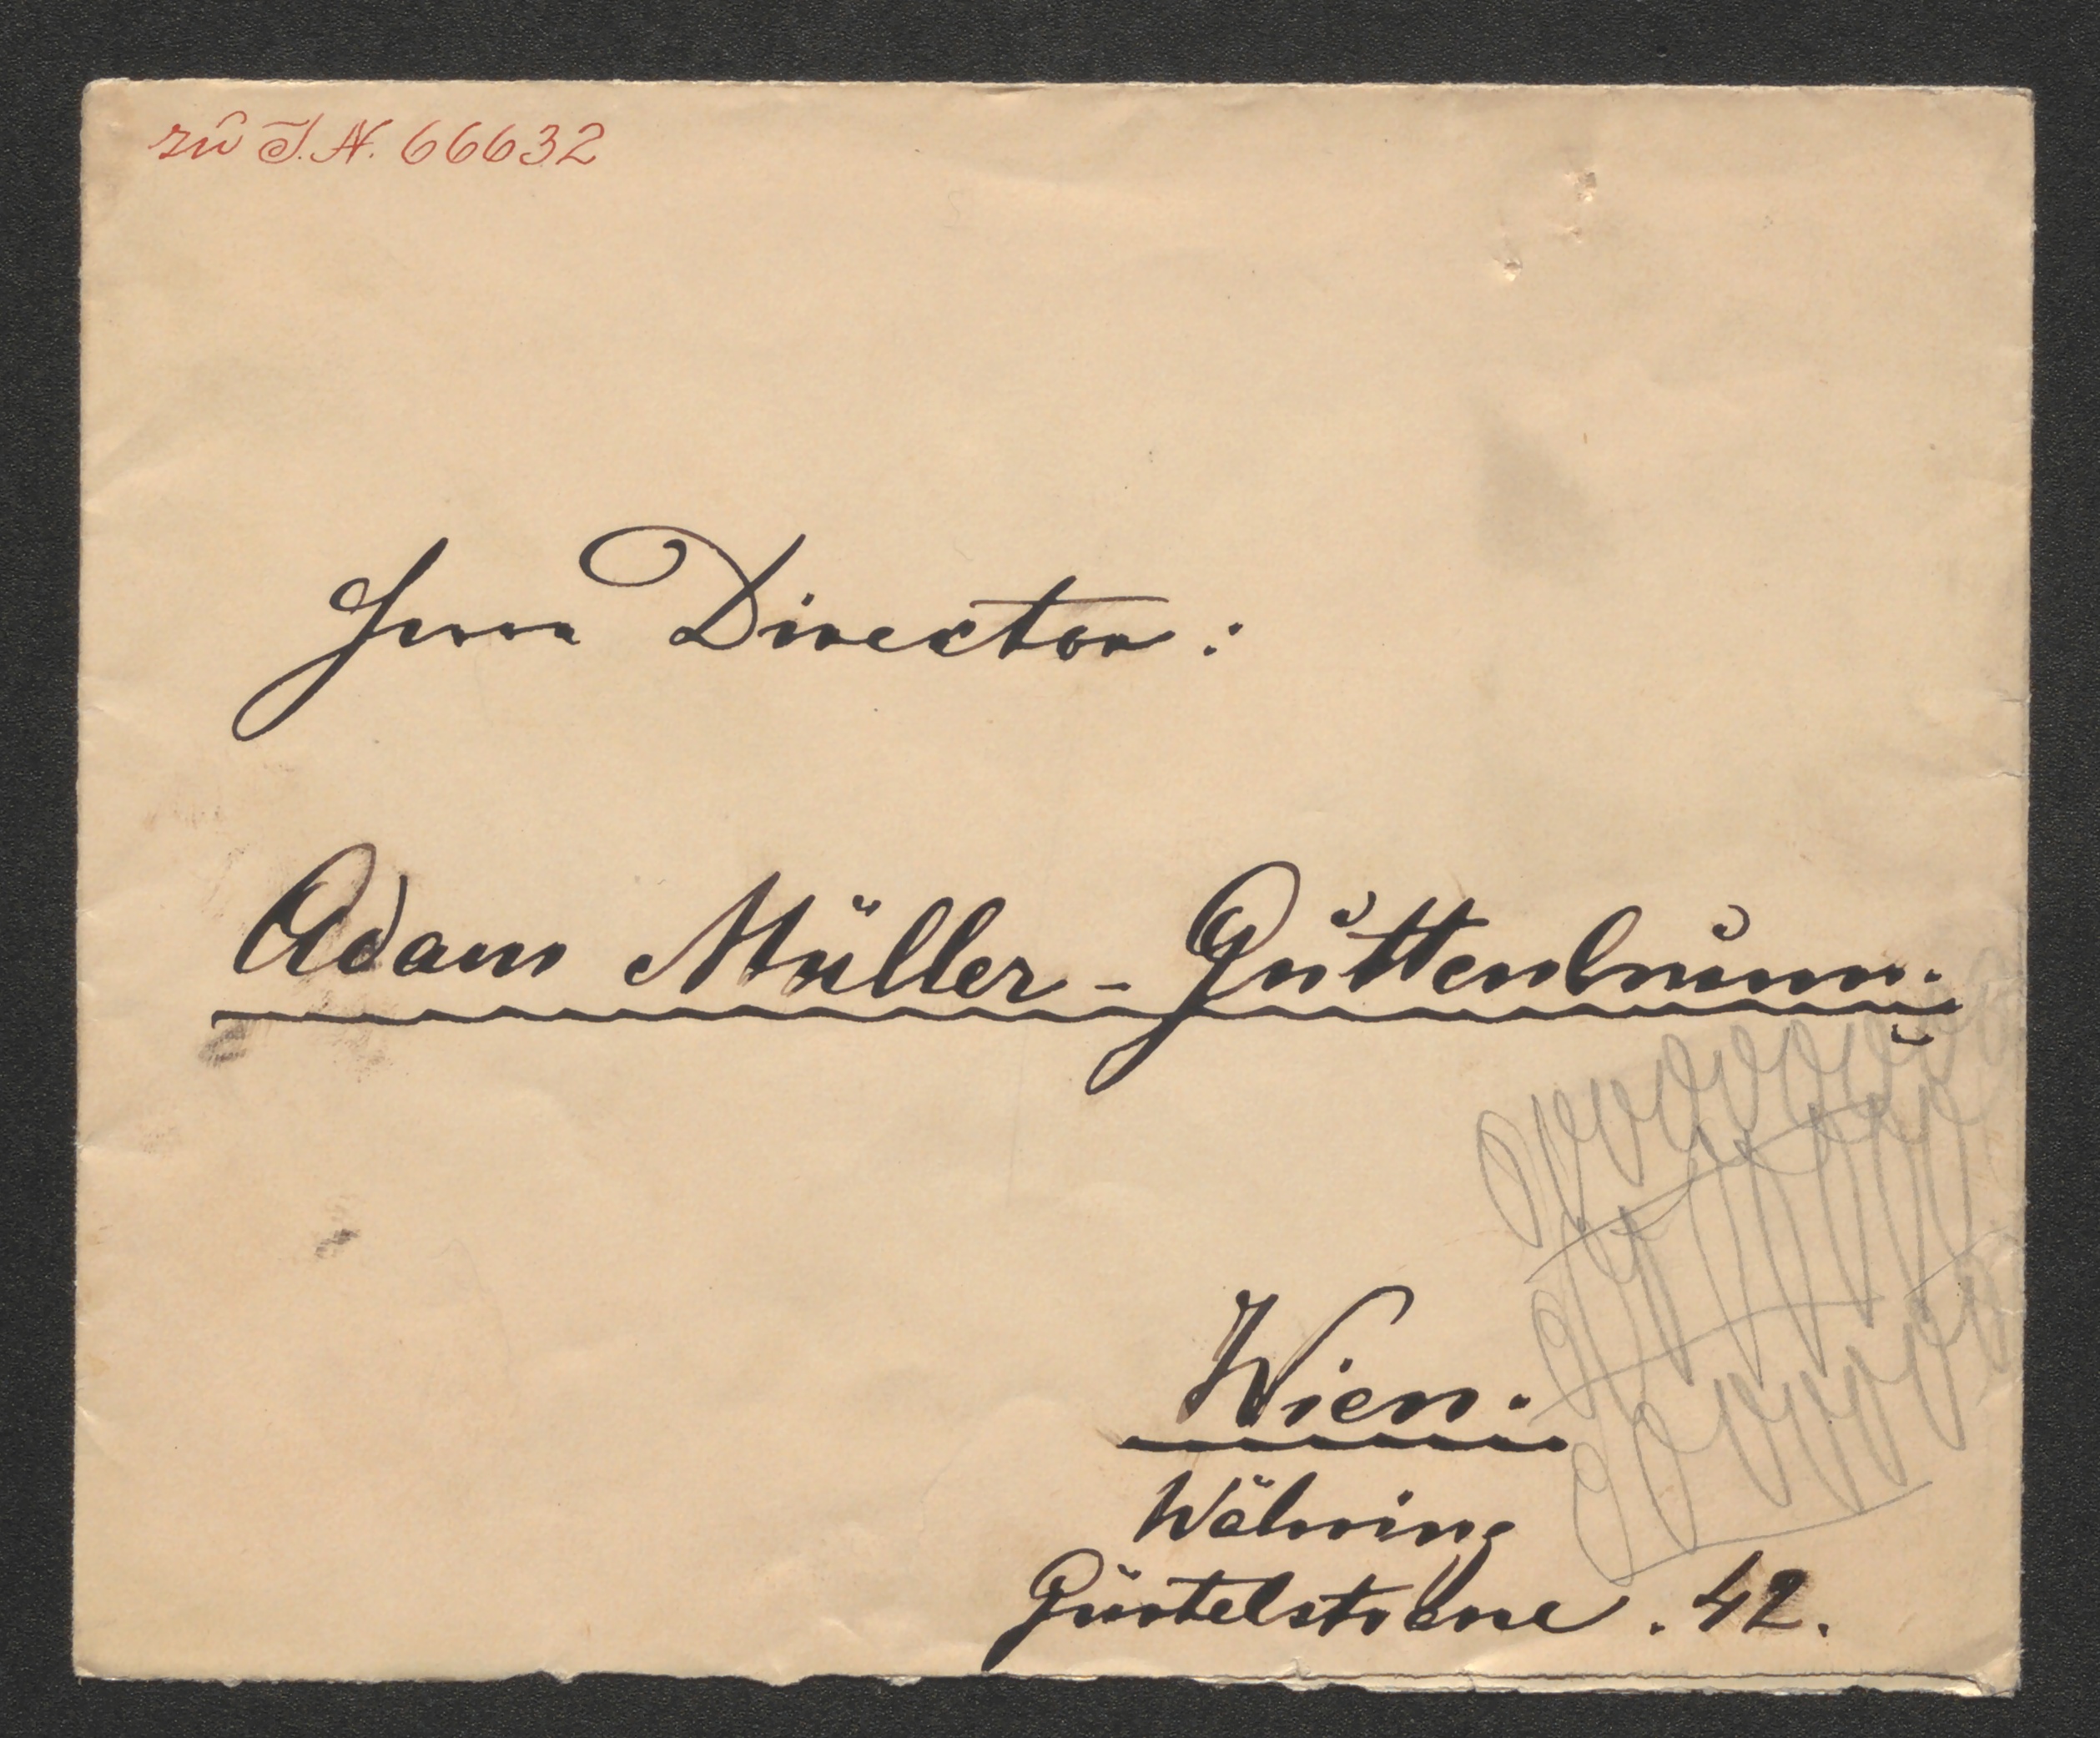 zu I.N. 66632
Herrn Director:
Adam Müller-Guttenbrunn.
Wien.
Währing
Gürtelstrasse. 42.